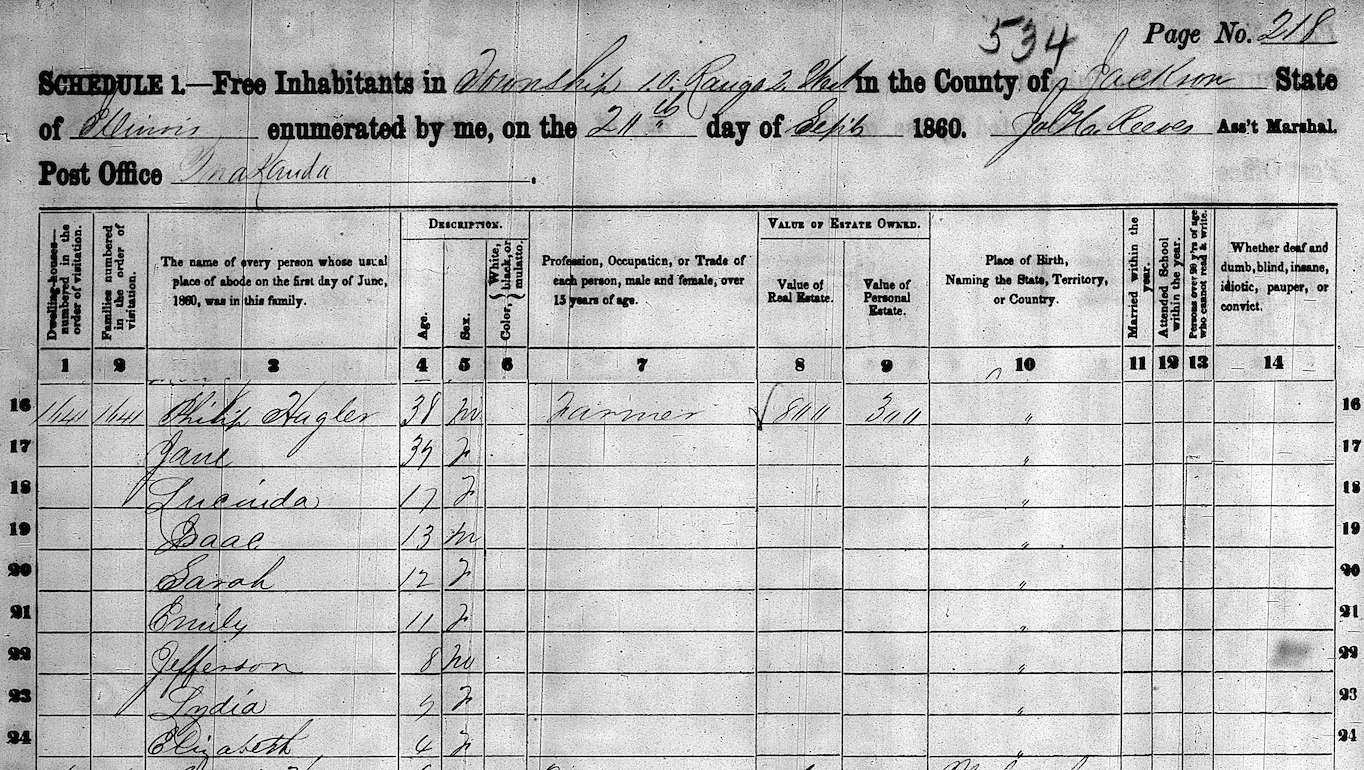 534
Page No. 218
SCHEDULE 1.—Free Inhabitants in Township 10. Range 2 West in the County of Jackson State
of Illinois enumerated by me, on the day of Sept 1860. Reeves Ass't Marshal.
Post Office
DESCRIPTION.
VALUE OF ESTATE OWNED.
Dwelling-houses—numbered in the order of visitation.
Families numbered in the order of visitation.
The name of every person whose usual place of abode on the first day of June, 1860, was in this family.
Age.
Sex.
Color, { White, black, or mulatto.
Profession, Occupation, or Trade of each person, male and female, over 15 years of age.
Value of Real Estate.
Value of Personal Estate.
Place of Birth, Naming the State, Territory, or Country.
Married within the year.
Attended School within the year.
Persons over 20 y'rs of age who cannot read & write.
Whether deaf and dumb, blind, insane, idiotic, pauper, or convict.
1 2 3 4 5 6 7 8 9 10 11 12 13 14
16 1641 1641 Philip Hagler 38 m Farmer 800 300 " 16
17 Jane F " 17
18 Lucinda 17 F " 18
19 Isaac 13 m " 19
20 Sarah 12 F " 20
21 Emily 11 F " 21
22 Jefferson 8 m " 22
23 Lydia 7 F " 23
24 Elizabeth 4 F " 24